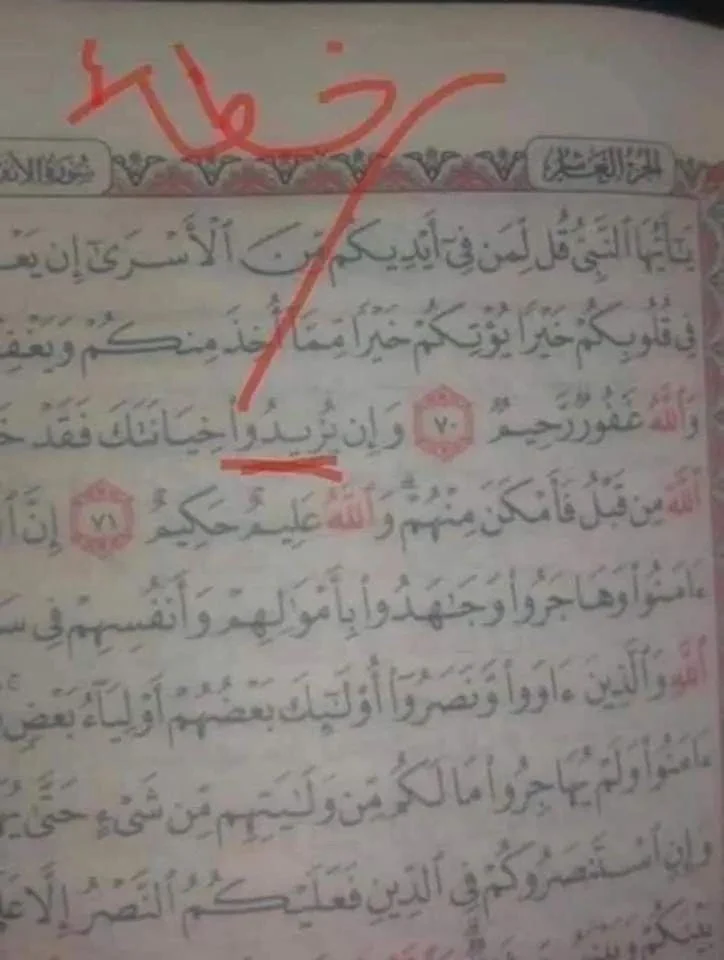 خطاء
الجزء العاشر سورة الأنف
يَٰٓأَيُّهَا ٱلنَّبِيُّ قُل لِّمَن فِيٓ أَيْدِيكُم مِّنَ ٱلْأَسْرَىٰٓ إِن يَعْ
فِي قُلُوبِكُمْ خَيْرًا يُؤْتِكُمْ خَيْرًا مِّمَّآ أُخِذَ مِنكُمْ وَيَغْفِ
وَٱللَّهُ غَفُورٌ رَّحِيمٌ ٧٠ وَإِن يُزِيدُوا۟ خِيَانَتَكَ فَقَدْ خَ
ٱللَّهَ مِن قَبْلُ فَأَمْكَنَ مِنْهُمْ ۗ وَٱللَّهُ عَلِيمٌ حَكِيمٌ ٧١ إِنَّ ٱ
ءَامَنُوا۟ وَهَاجَرُوا۟ وَجَٰهَدُوا۟ بِأَمْوَٰلِهِمْ وَأَنفُسِهِمْ فِي سَ
ٱللَّهِ وَٱلَّذِينَ ءَاوَوا۟ وَّنَصَرُوٓا۟ أُو۟لَٰٓئِكَ بَعْضُهُمْ أَوْلِيَآءُ بَعْضٍ ۚ
ءَامَنُوا۟ وَلَمْ يُهَاجِرُوا۟ مَا لَكُم مِّن وَلَٰيَتِهِم مِّن شَيْءٍ حَتَّىٰ يُهَ
وَإِنِ ٱسْتَنصَرُوكُمْ فِي ٱلدِّينِ فَعَلَيْكُمُ ٱلنَّصْرُ إِلَّا عَلَ
بَيْنَكُمْ وَبَيْنَهُم